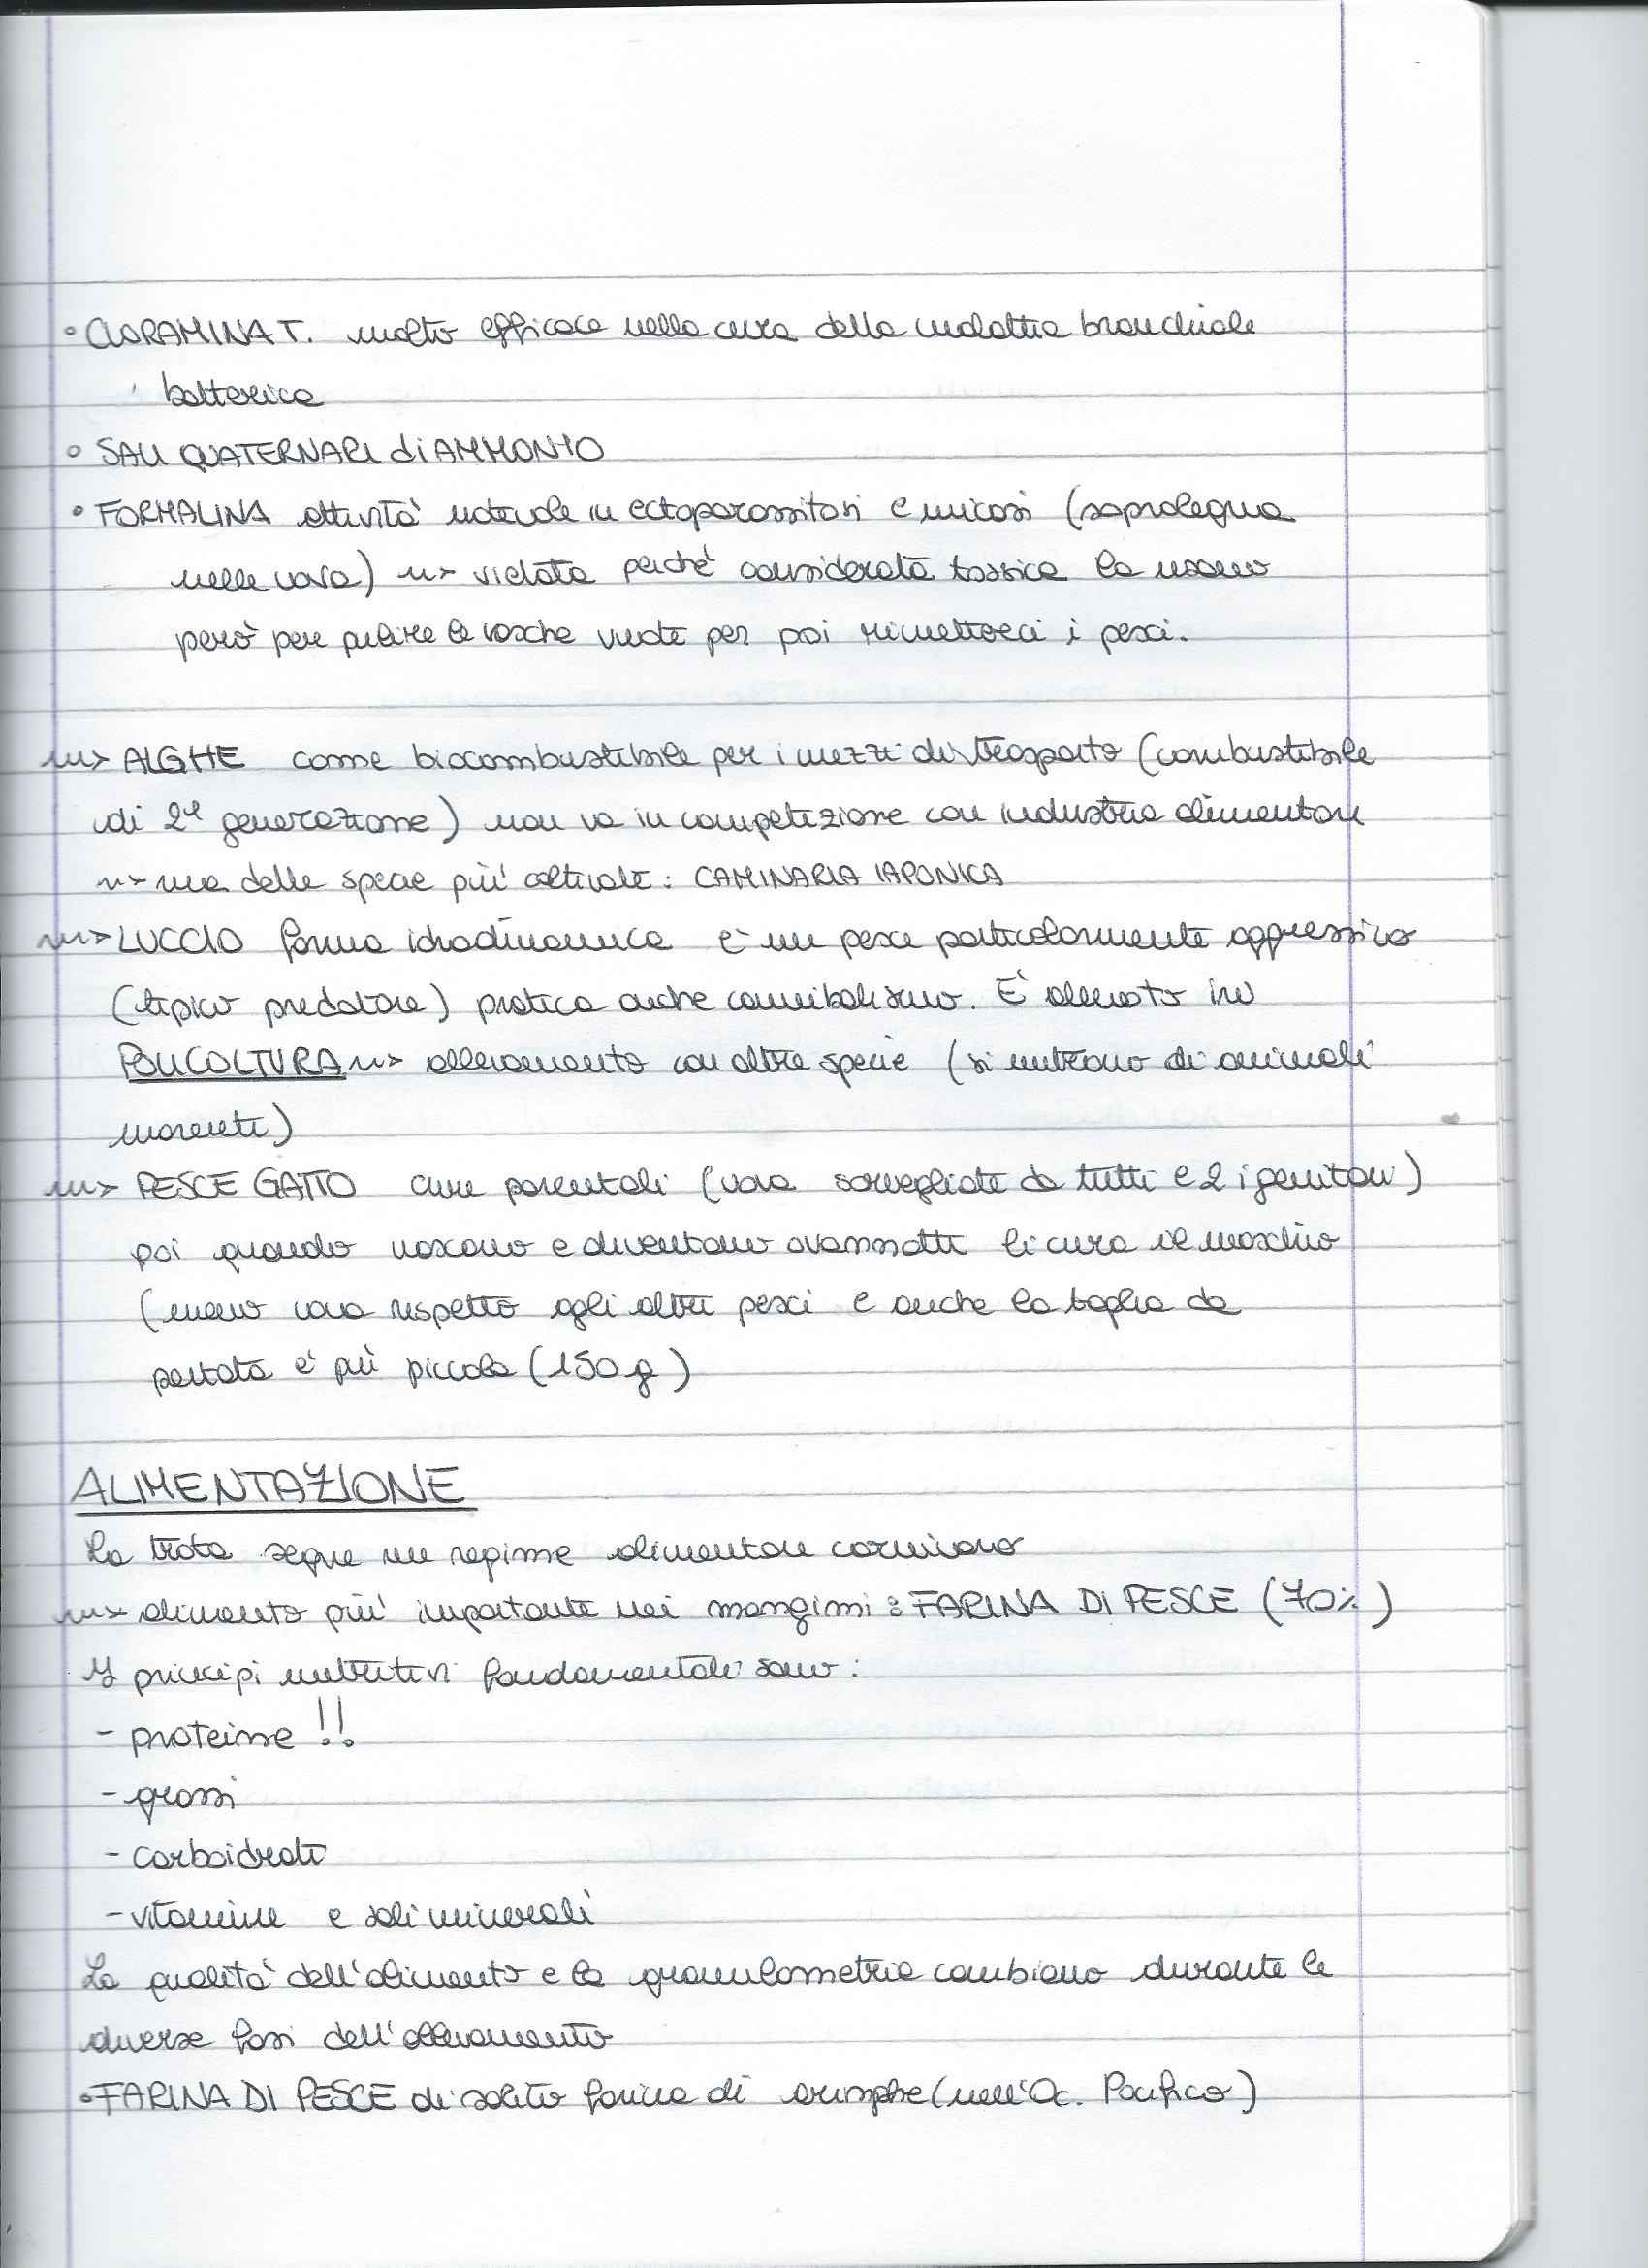 • CLORAMINA T. molto efficace nella cura della malattia branchiale
batterica
• SALI QUATERNARI di AMMONIO
• FORMALINA attività notevole su ectoparassitosi e micosi (saprolegnia
nelle uova) ⇝ vietata perché considerata tossica la usano
però per pulire le vasche vuote per poi rimetterci i pesci.
⇝ ALGHE come biocombustibile per i mezzi di trasporto (combustibile
di 2ª generazione) non va in competizione con industria alimentare
⇝ una delle specie più coltivate: LAMINARIA IAPONICA
⇝ LUCCIO forma idrodinamica è un pesce particolarmente aggressivo
(tipico predatore) pratica anche cannibalismo. È allevato in
POLICOLTURA ⇝ allevamento con altre specie (si nutrono di animali
morenti)
⇝ PESCE GATTO cure parentali (uova sorvegliate da tutti e 2 i genitori)
poi quando nascono e diventano avannotti li cura il maschio
(meno uova rispetto agli altri pesci e anche la taglia da
portata è più piccola (150 g)
ALIMENTAZIONE
La trota segue un regime alimentare carnivoro
⇝ alimento più importante nei mangimi: FARINA DI PESCE (70%)
I principi nutritivi fondamentali sono:
- proteine !!
- grassi
- carboidrati
- vitamine e sali minerali
La qualità dell'alimento e la granulometria cambiano durante le
diverse fasi dell'allevamento
• FARINA DI PESCE di solito farina di aringhe (nell'Oc. Pacifico)